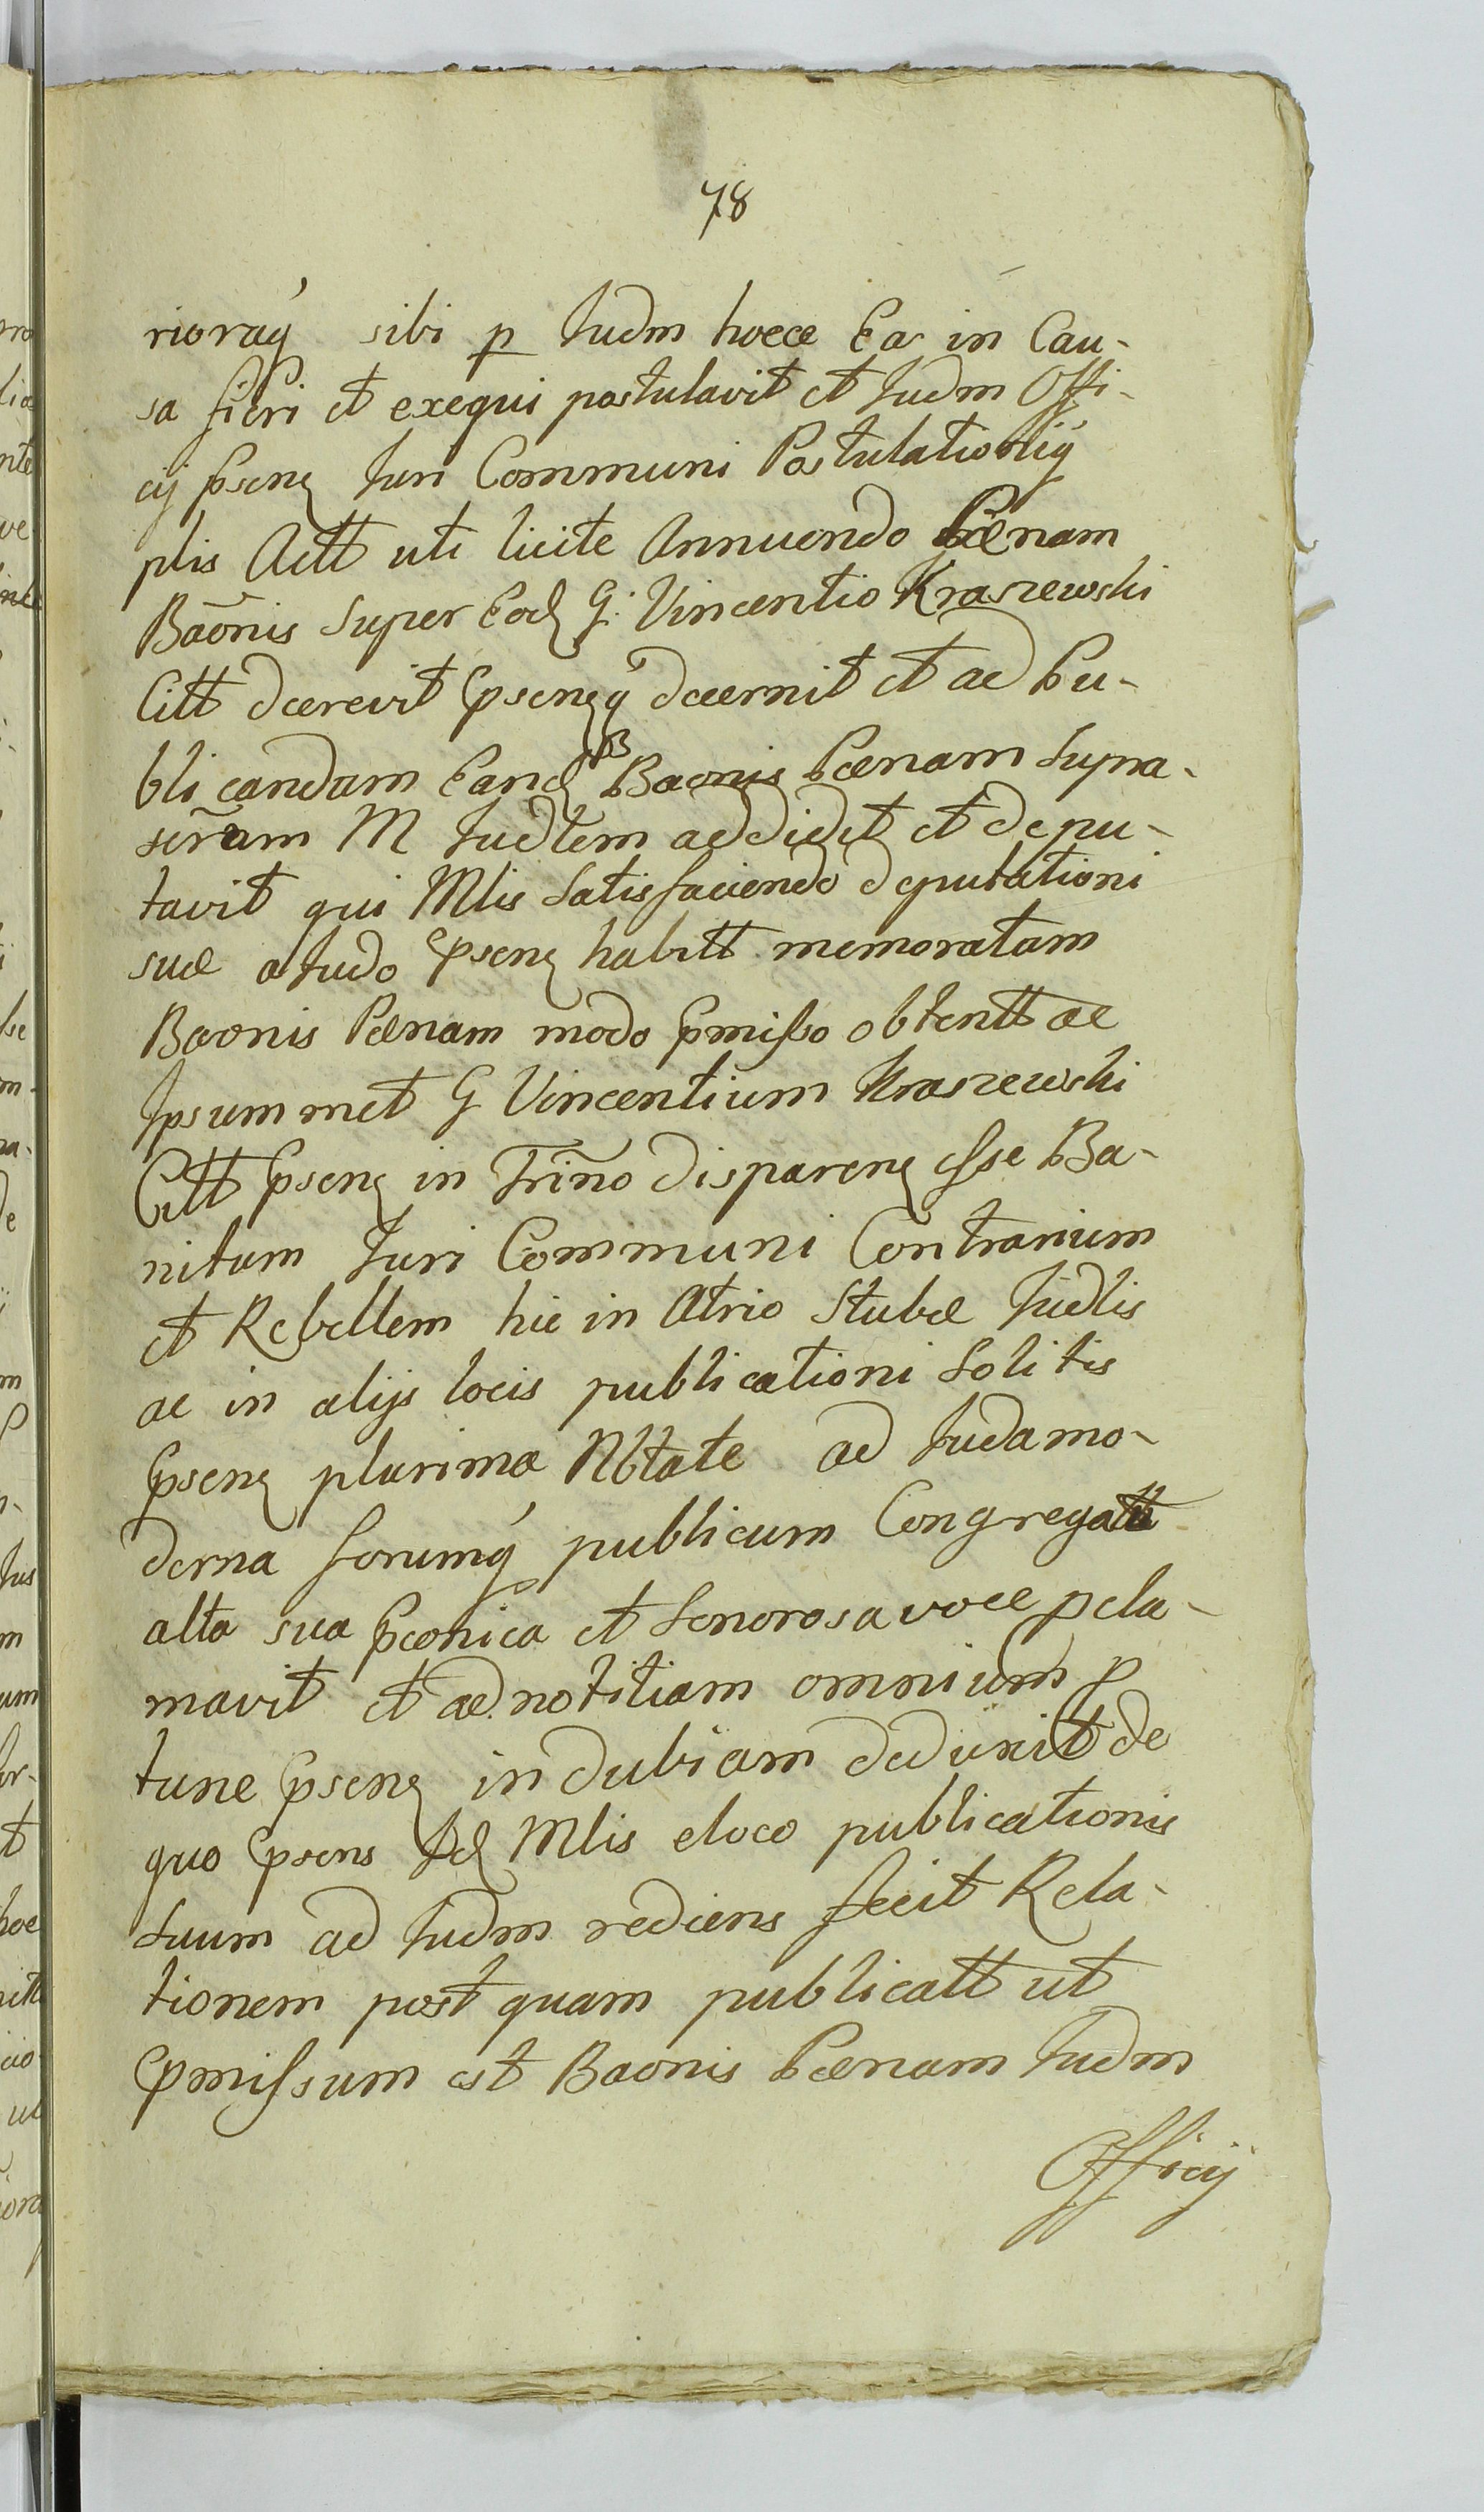 78
rioraq́ sibi p Iudm hocce Ea in Cau-
sa fieri et exequi postulavit et Iudm Offi-
cij Psens Iuri Communi Postulationiq́
plis Actt uti licite Annuendo Pœnam
Baõnis Super Eod G: Vincentio Kraszewski
Citt dcerevit Psensq́ dcernit et ad Pu-
blicandam Eand Baonis Pœnam Supra-
scr̃am M Iudlem addidit et depu-
tavit qui Mlis Satisfaciendo deputationi
suæ a Iudo Psens habitt memoratam
Baonis Pœnam modo Pmisso obtentt ac
Ipsummet G Vincentium Kraszewski
Citt Psens in Trĩno disparens esse Ba-
nitum Iuri Communi Contrarium
et Rebellem hic in Atrio Stubæ Iudlis
ac in alijs locis publicationi Solitis
Psens plurima Nbtate ad Iuda mo-
derna forumq́ publicum Congregatt
alta sua Pconica et Sonorosa voce pcla-
mavit et ad notitiam omnium p
tunc Psens indubiam deduxit de
quo Psens Id Mlis eloco publicationis
Suum ad Iudm rediens fecit Rela-
tionem post quam publicatt ut
Pmissum est Baonis Pœnam Iudm
Officij